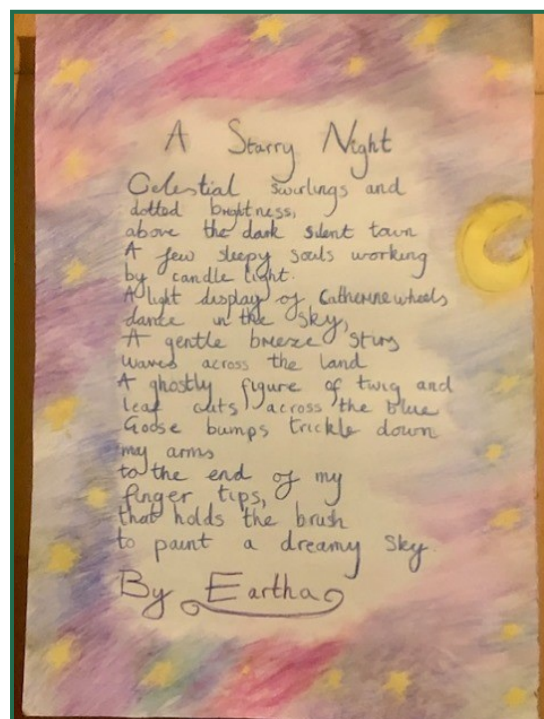 A Starry Night
Celestial swirlings and
dotted brightness,
above the dark silent town
A few sleepy souls working
by candle light.
A light display of Catherine wheels
dance in the sky,
A gentle breeze stirs
waves across the land
A ghostly figure of twig and
leaf cuts across the blue
Goose bumps trickle down
my arms
to the end of my
finger tips,
that holds the brush
to paint a dreamy sky.
By Eartha